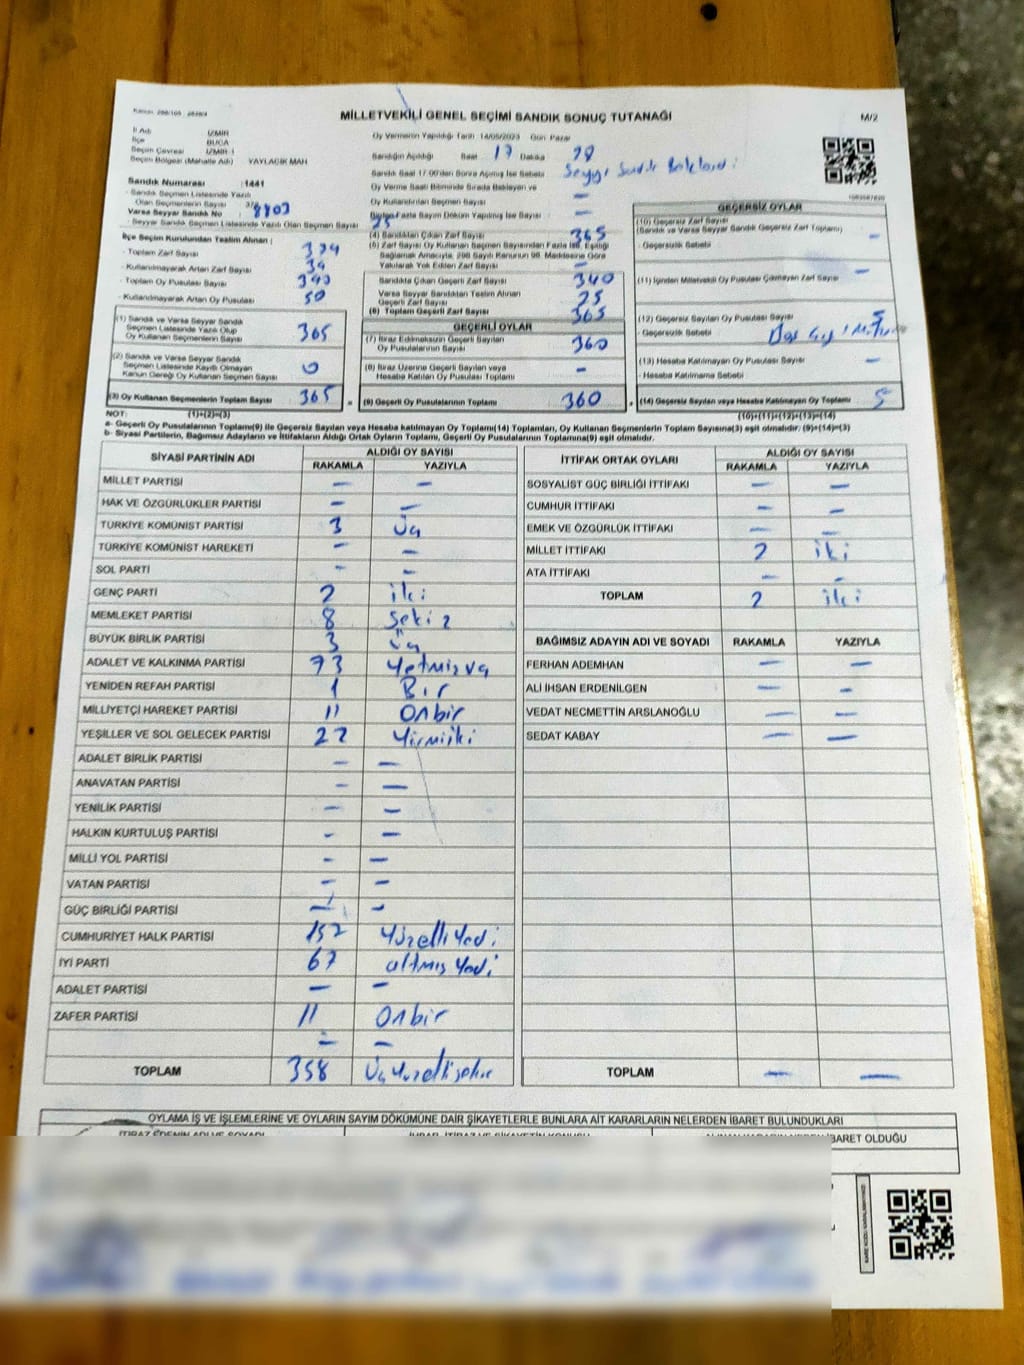 MİLLETVEKİLİ GENEL SEÇİMİ SANDIK SONUÇ TUTANAĞI
M/2
İl Adı İZMİR
İlçe BUCA
Seçim Çevresi İZMİR-1
Seçim Bölgesi (Mahalle Adı) YAYLACIK MAH
Sandık Numarası :1441
- Sandık Seçmen Listesinde Yazılı
Olan Seçmenlerin Sayısı
Varsa Seyyar Sandık No 8803
- Seyyar Sandık Seçmen Listesinde Yazılı Olan Seçmen Sayısı 25
İlçe Seçim Kurulundan Teslim Alınan ;
- Toplam Zarf Sayısı
- Kullanılmayarak Artan Zarf Sayısı
- Toplam Oy Pusulası Sayısı
- Kullanılmayarak Artan Oy Pusulası 50
(1) Sandık ve Varsa Seyyar Sandık
Seçmen Listesinde Yazılı Olup
Oy Kullanan Seçmenlerin Sayısı 365
(2) Sandık ve Varsa Seyyar Sandık
Seçmen Listesinde Kayıtlı Olmayan
Kanun Gereği Oy Kullanan Seçmen Sayısı 0
(3) Oy Kullanan Seçmenlerin Toplam Sayısı 365
Oy Vermenin Yapıldığı Tarih 14/05/2023 Gün Pazar
Sandığın Açıldığı Saat 17 Dakika
Sandık Saat 17.00'den Sonra Açılmış İse Sebebi Seyyar Sandık
Oy Verme Saati Bitiminde Sırada Bekleyen ve
Oy Kullandırılan Seçmen Sayısı -
Birden Fazla Sayım Döküm Yapılmış İse Sayısı -
(4) Sandıktan Çıkan Zarf Sayısı 365
(5) Zarf Sayısı Oy Kullanan Seçmen Sayısından Fazla İse, Eşitliği
Sağlamak Amacıyla, 298 Sayılı Kanunun 98. Maddesine Göre
Yakılarak Yok Edilen Zarf Sayısı -
Sandıkta Çıkan Geçerli Zarf Sayısı 340
Varsa Seyyar Sandıktan Teslim Alınan
Geçerli Zarf Sayısı 25
(6) Toplam Geçerli Zarf Sayısı 365
GEÇERLİ OYLAR
(7) İtiraz Edilmeksizin Geçerli Sayılan
Oy Pusulalarının Sayısı 360
(8) İtiraz Üzerine Geçerli Sayılan veya
Hesaba Katılan Oy Pusulası Toplamı -
(9) Geçerli Oy Pusulalarının Toplamı 360
GEÇERSİZ OYLAR
(10) Geçersiz Zarf Sayısı
(Sandık ve Varsa Seyyar Sandık Geçersiz Zarf Toplamı) -
- Geçersizlik Sebebi
(11) İçinden Milletvekili Oy Pusulası Çıkmayan Zarf Sayısı -
(12) Geçersiz Sayılan Oy Pusulası Sayısı 5
- Geçersizlik Sebebi
(13) Hesaba Katılmayan Oy Pusulası Sayısı -
- Hesaba Katılmama Sebebi
(14) Geçersiz Sayılan veya Hesaba Katılmayan Oy Toplamı 5
NOT: (1)+(2)=(3) (10)+(11)+(12)+(13)=(14)
a- Geçerli Oy Pusulalarının Toplamı(9) ile Geçersiz Sayılan veya Hesaba katılmayan Oy Toplamı(14) Toplamları, Oy Kullanan Seçmenlerin Toplam Sayısına(3) eşit olmalıdır; (9)+(14)=(3)
b- Siyasi Partilerin, Bağımsız Adayların ve İttifakların Aldığı Ortak Oyların Toplamı, Geçerli Oy Pusulalarının Toplamına(9) eşit olmalıdır.
SİYASİ PARTİNİN ADI ALDIĞI OY SAYISI
RAKAMLA YAZIYLA
MİLLET PARTİSİ - -
HAK VE ÖZGÜRLÜKLER PARTİSİ - -
TÜRKİYE KOMÜNİST PARTİSİ 3 Üç
TÜRKİYE KOMÜNİST HAREKETİ - -
SOL PARTİ - -
GENÇ PARTİ 2 iki
MEMLEKET PARTİSİ 8 Sekiz
BÜYÜK BİRLİK PARTİSİ 3 Üç
ADALET VE KALKINMA PARTİSİ 73 Yetmişüç
YENİDEN REFAH PARTİSİ 1 Bir
MİLLİYETÇİ HAREKET PARTİSİ 11 Onbir
YEŞİLLER VE SOL GELECEK PARTİSİ 27 Yirmiiki
ADALET BİRLİK PARTİSİ - -
ANAVATAN PARTİSİ - -
YENİLİK PARTİSİ - -
HALKIN KURTULUŞ PARTİSİ - -
MİLLİ YOL PARTİSİ - -
VATAN PARTİSİ - -
GÜÇ BİRLİĞİ PARTİSİ - -
CUMHURİYET HALK PARTİSİ 157 Yüzelliyedi
İYİ PARTİ 67 altmışyedi
ADALET PARTİSİ - -
ZAFER PARTİSİ 11 Onbir
- -
TOPLAM 358 Üçyüzellisekiz
İTTİFAK ORTAK OYLARI ALDIĞI OY SAYISI
RAKAMLA YAZIYLA
SOSYALİST GÜÇ BİRLİĞİ İTTİFAKI - -
CUMHUR İTTİFAKI - -
EMEK VE ÖZGÜRLÜK İTTİFAKI - -
MİLLET İTTİFAKI 2 iki
ATA İTTİFAKI - -
TOPLAM 2 iki
BAĞIMSIZ ADAYIN ADI VE SOYADI RAKAMLA YAZIYLA
FERHAN ADEMHAN - -
ALİ İHSAN ERDENİLGEN - -
VEDAT NECMETTİN ARSLANOĞLU - -
SEDAT KABAY - -
TOPLAM - -
OYLAMA İŞ VE İŞLEMLERİNE VE OYLARIN SAYIM DÖKÜMÜNE DAİR ŞİKAYETLERLE BUNLARA AİT KARARLARIN NELERDEN İBARET BULUNDUKLARI
İTİRAZ EDENİN ADI VE SOYADI
İBARET OLDUĞU